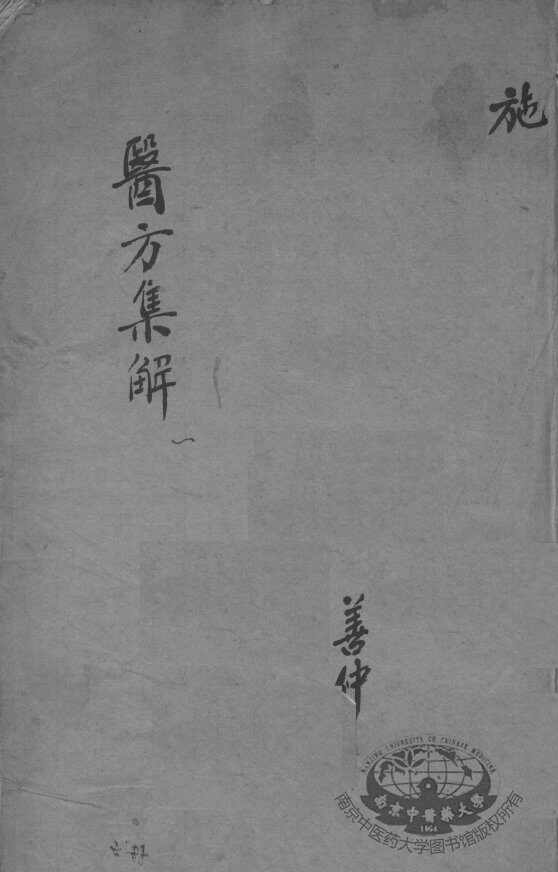 施
醫方集解
善仲
NANJING UNIVERSITY OF CHINESE MEDICINE
南京中醫藥大學
1954
南京中医药大学图书馆版权所有